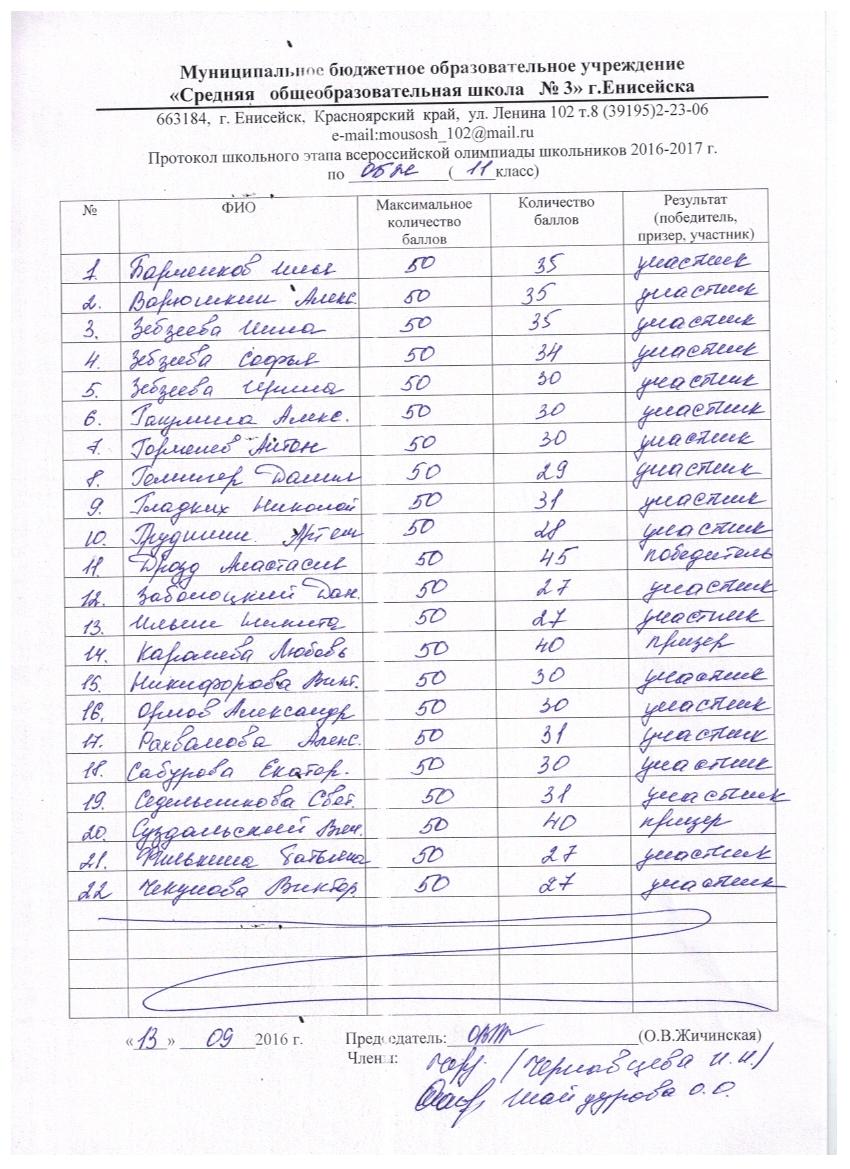 Муниципальное бюджетное образовательное учреждение
«Средняя общеобразовательная школа № 3» г.Енисейска
663184, г. Енисейск, Красноярский край, ул. Ленина 102 т.8 (39195)2-23-06
e-mail:mousosh_102@mail.ru
Протокол школьного этапа всероссийской олимпиады школьников 2016-2017 г.
по ОБЖ (11 класс)
№ ФИО Максимальное количество баллов Количество баллов Результат (победитель, призер, участник)
1. Илья 50 35 участник
2. Варюшкин Алекс. 50 35 участник
3. Зебзеева Нина 50 35 участник
4. Зебзеева Софья 50 34 участник
5. Зебзеева Ирина 50 30 участник
6. Алекс. 50 30 участник
7. Антон 50 30 участник
8. Данил 50 29 участник
9. Гладких Николай 50 31 участник
10. Грудинин Артем 50 28 участник
11. Дрозд Анастасия 50 45 победитель
12. Заболоцкий Дан. 50 27 участник
13. Ильин Никита 50 27 участник
14. Любовь 50 40 призер
15. Никифорова Викт. 50 30 участник
16. Орлов Александр 50 30 участник
17. Рахвалова Алекс. 50 31 участник
18. Сабурова Екатер. 50 30 участник
19. Седельникова Свет. 50 31 участник
20. Суздальский Вяч. 50 40 призер
21. Филькина Татьяна 50 27 участник
22 Чекунова Виктор. 50 27 участник
«13» 09 2016 г. Председатель: (О.В.Жичинская)
Члены: (Чернавцева Н.И.)
Шайдурова О.О.